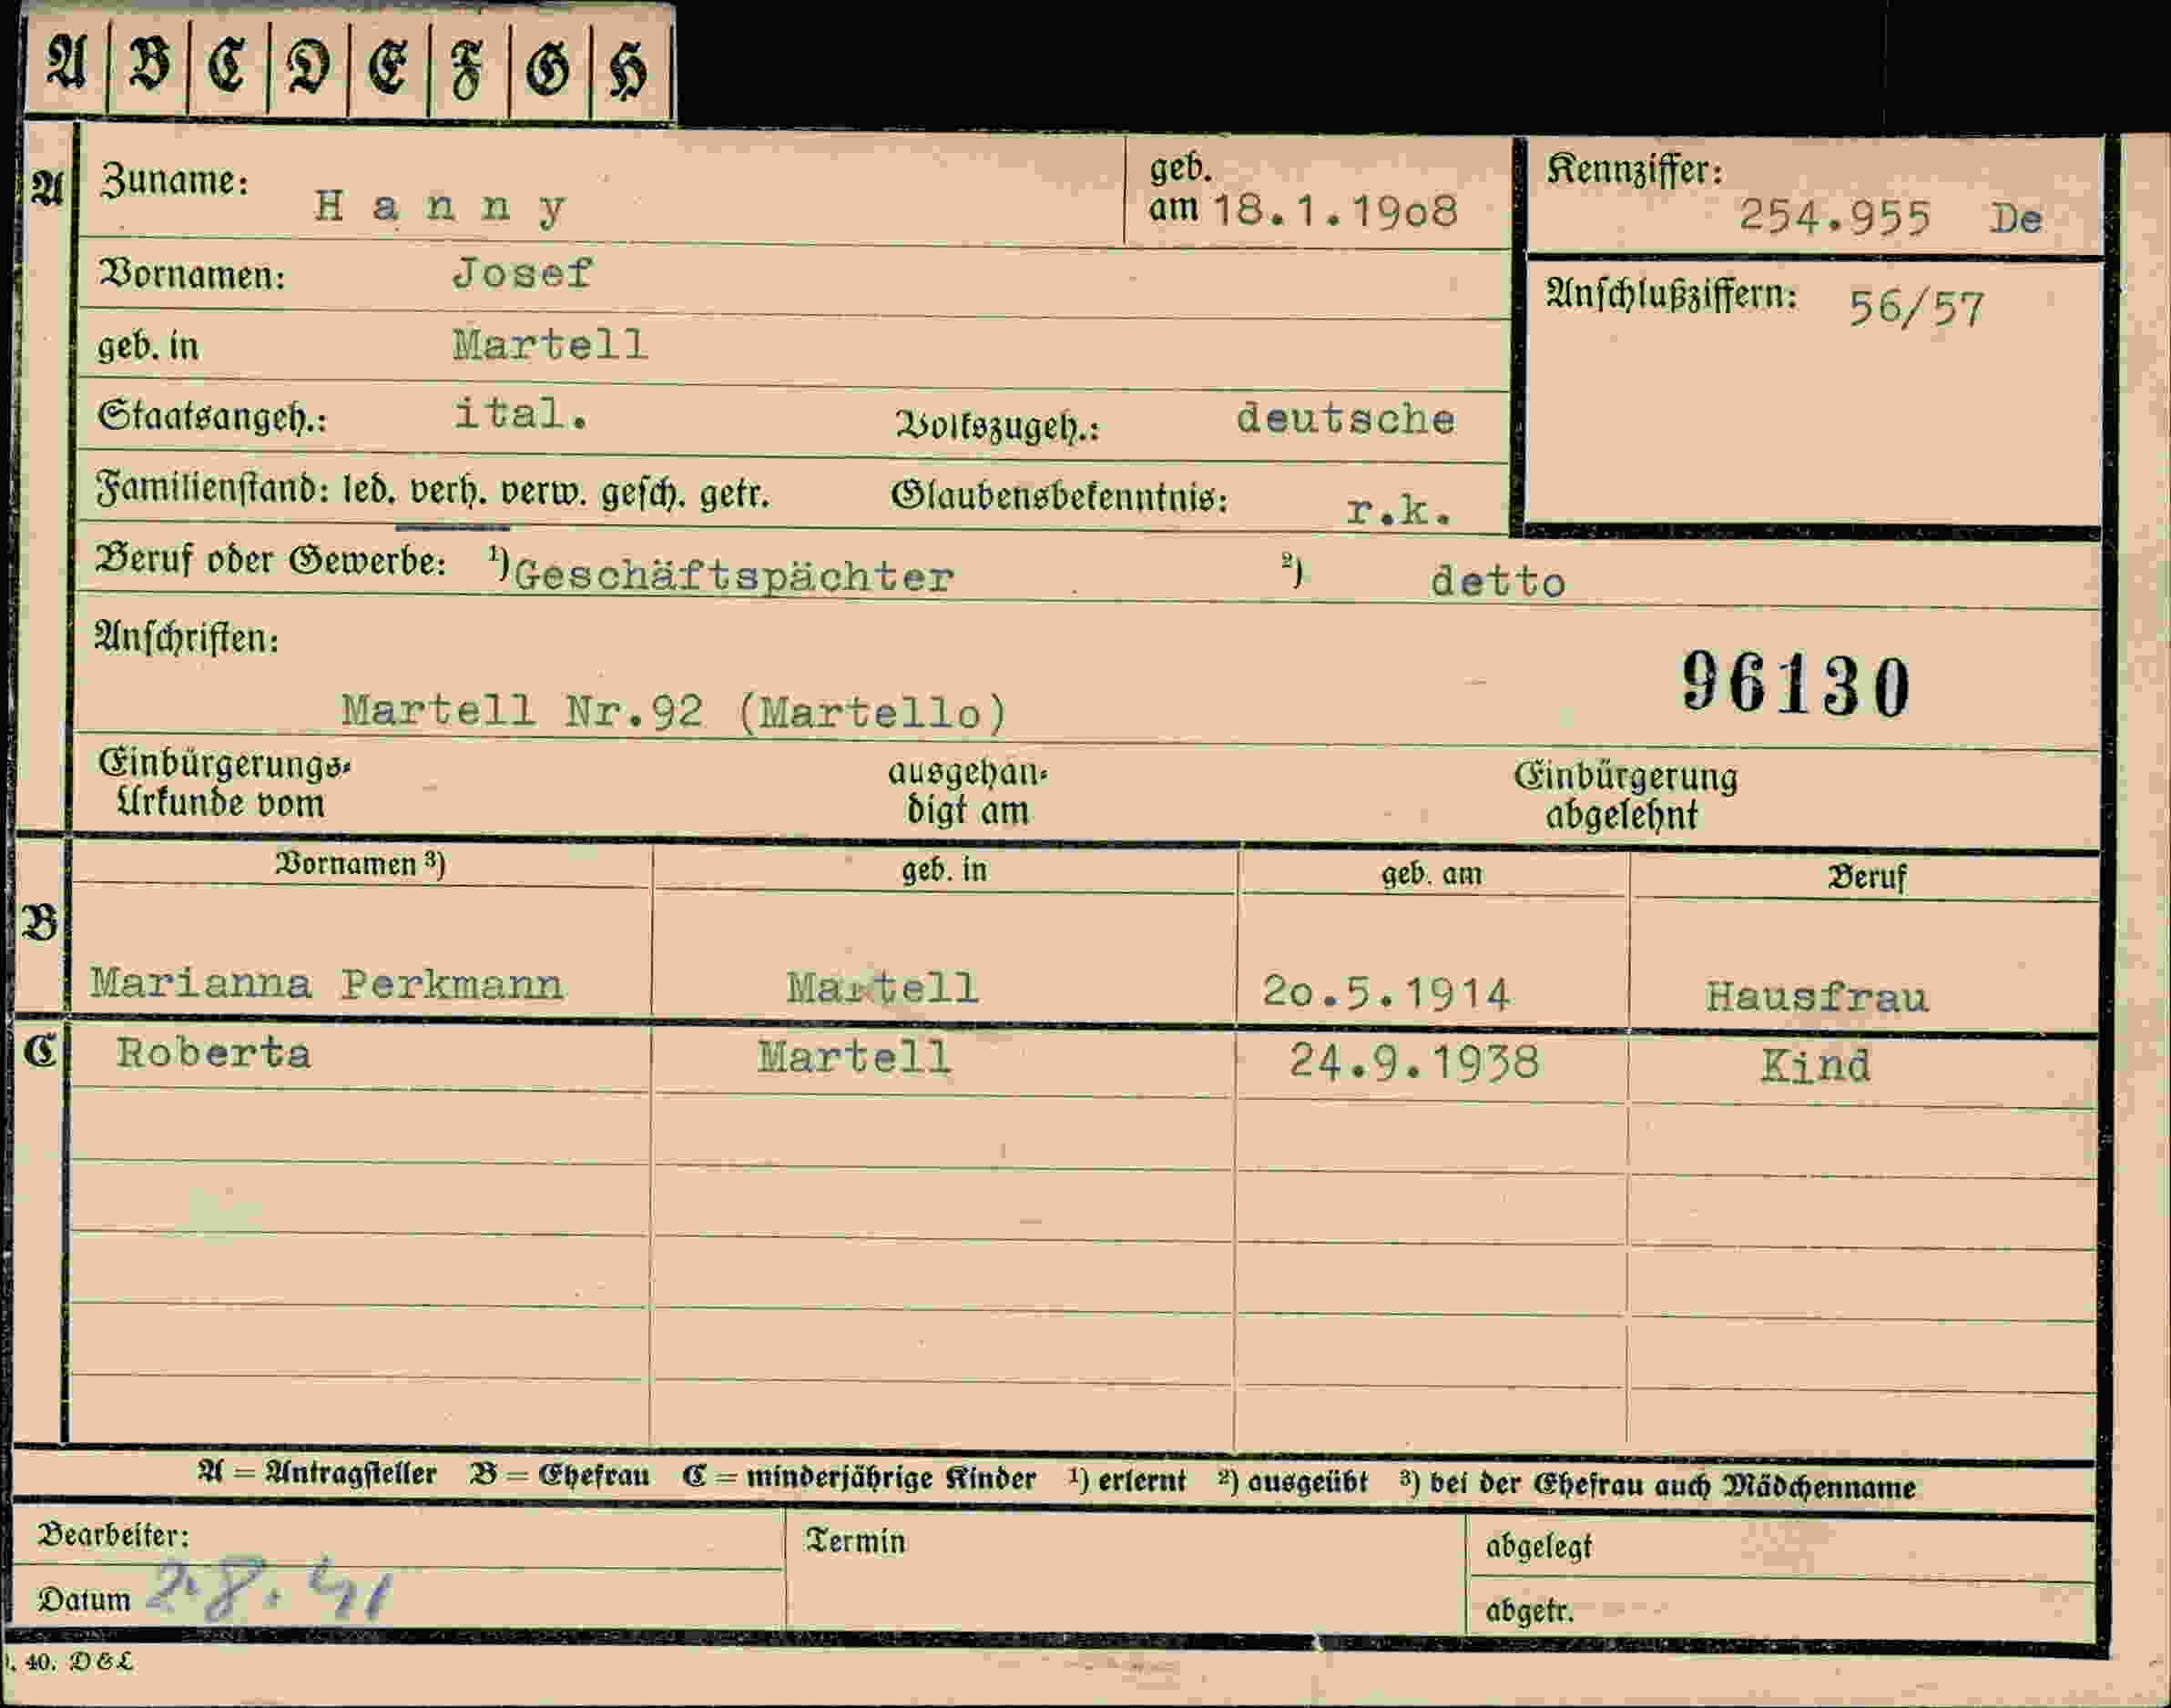 A B C D E F G H
A Zuname: Hanny geb. am 18.1.19o8 Kennziffer: 254.955 De
Vornamen: Josef Anschlußziffern: 56/57
geb. in Martell
Staatsangeh.: ital. Volkszugeh.: deutsche
Familienstand: led. verh. verw. gesch. getr. Glaubensbekenntnis: r.k.
Beruf oder Gewerbe: ¹) Geschäftspächter ²) detto
Anschriften:
96130
Martell Nr.92 (Martello)
Einbürgerungs- ausgehän- Einbürgerung
Urkunde vom digt am abgelehnt
Vornamen ³) geb. in geb. am Beruf
B
Marianna Perkmann Martell 2o.5.1914 Hausfrau
C Roberta Martell 24.9.1938 Kind
A = Antragsteller B = Ehefrau C = minderjährige Kinder ¹) erlernt ²) ausgeübt ³) bei der Ehefrau auch Mädchenname
Bearbeiter: Termin abgelegt
Datum 2.8.41 abgetr.
40. D&L